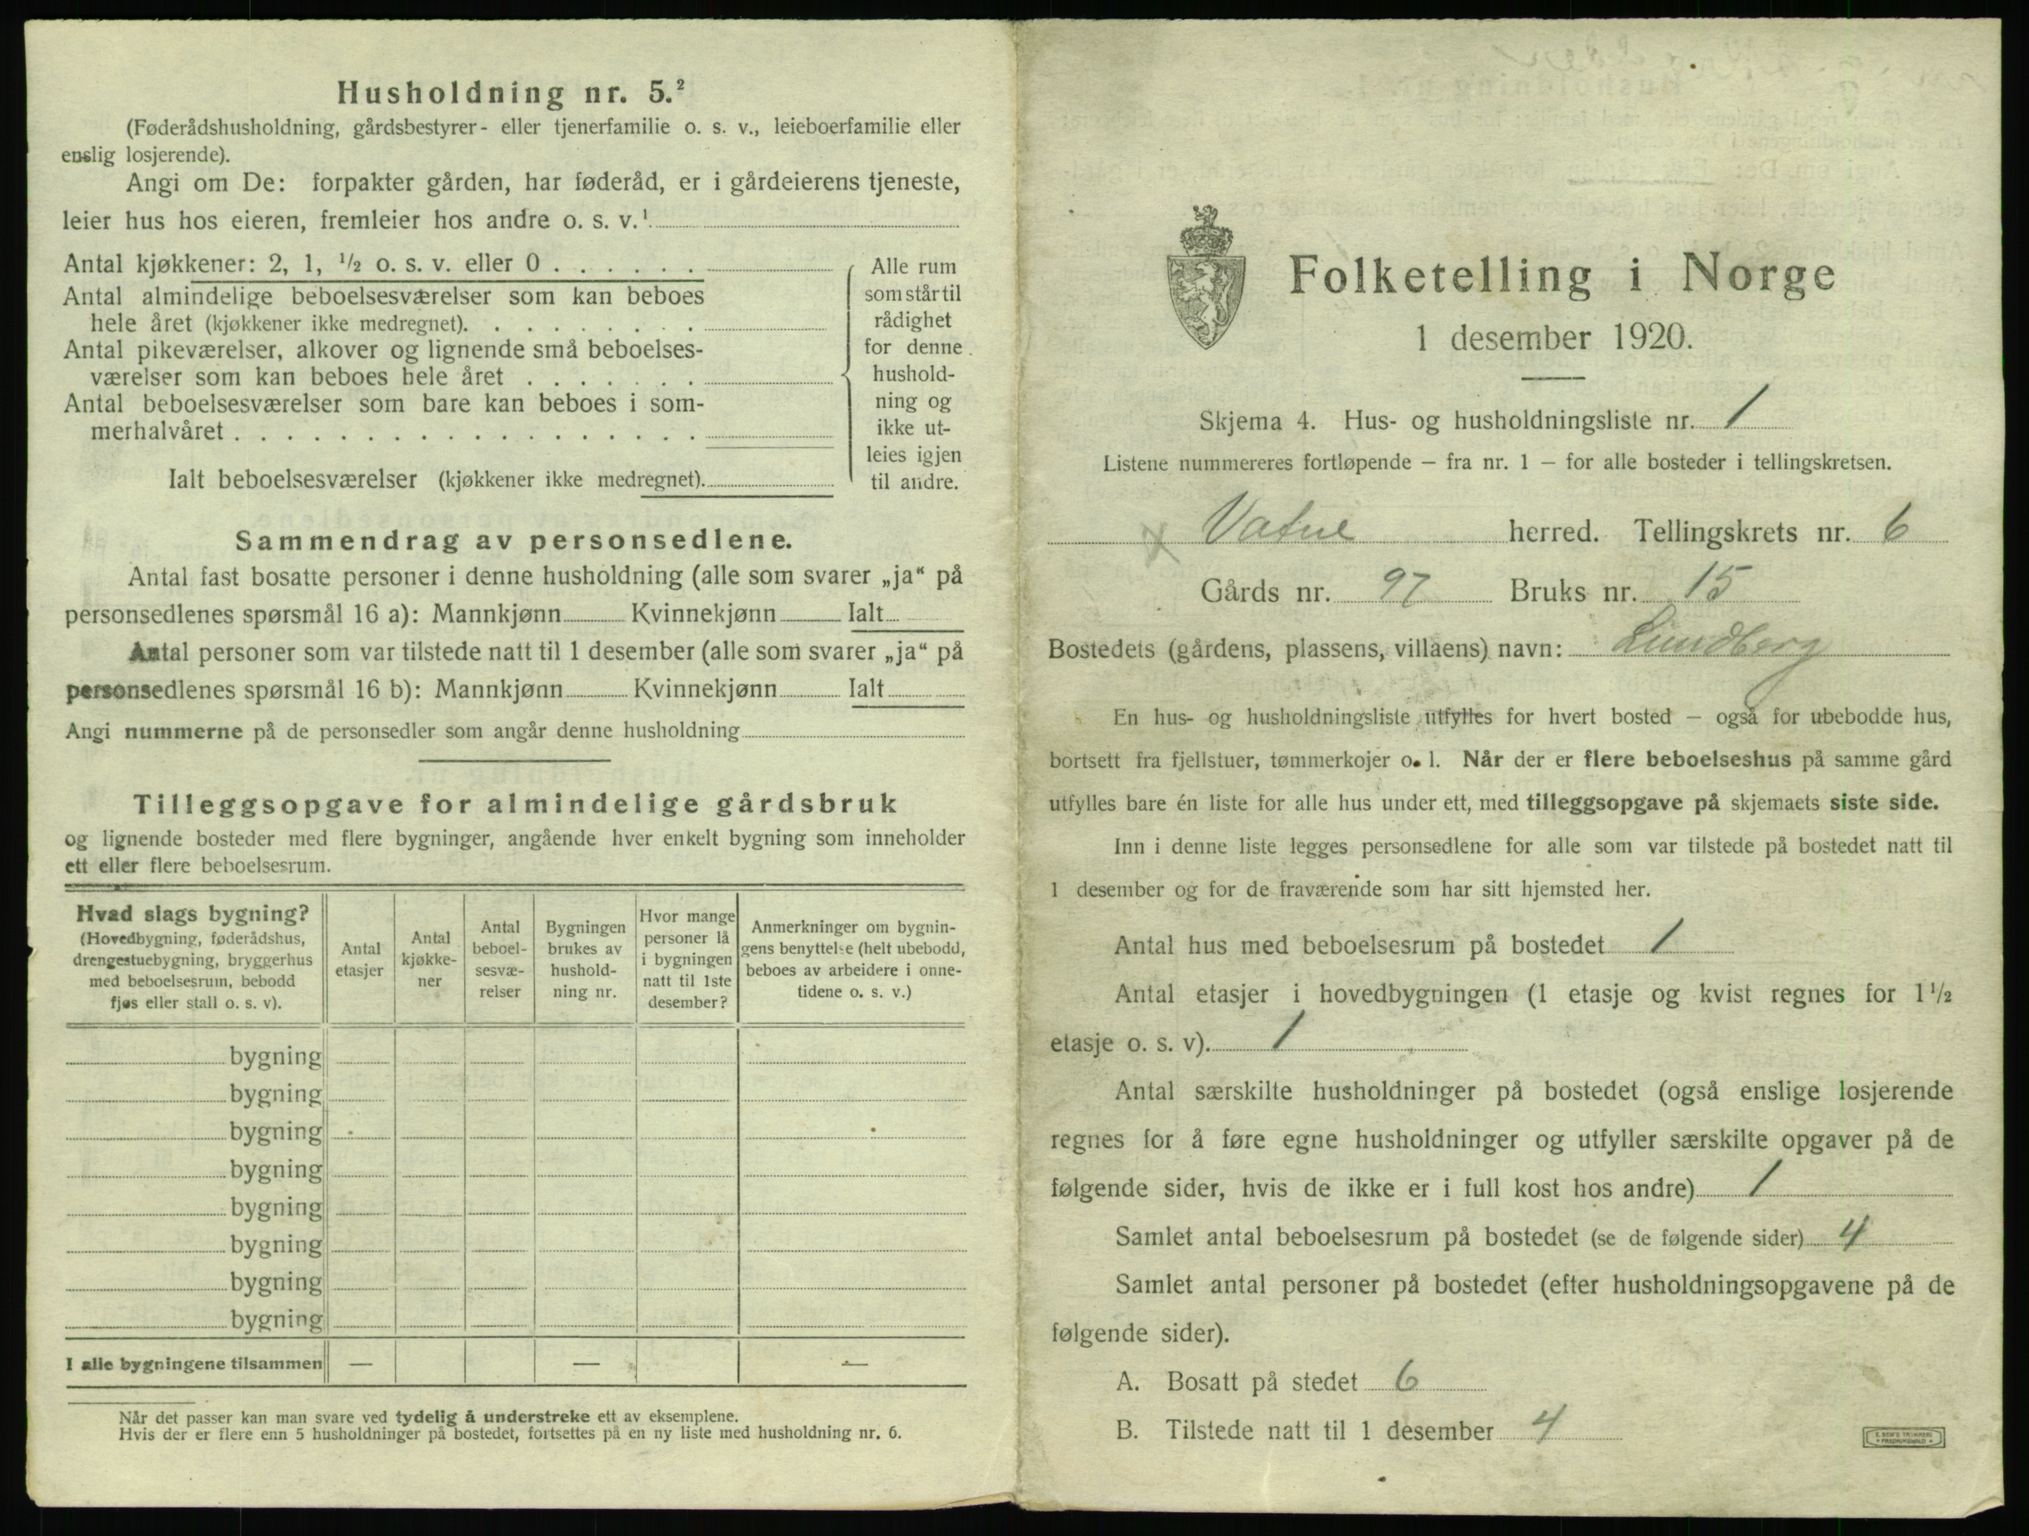 Husholdning nr. 5.²
(Føderådshusholdning, gårdsbestyrer- eller tjenerfamilie o. s. v., leieboerfamilie eller
enslig losjerende).
Angi om De: forpakter gården, har føderåd, er i gårdeierens tjeneste,
leier hus hos eieren, fremleier hos andre o. s. v.¹
Antal kjøkkener: 2, 1, ½ o. s. v. eller 0 . . . . . .
Antal almindelige beboelsesværelser som kan beboes
hele året (kjøkkener ikke medregnet). . . . . . . . .
Antal pikeværelser, alkover og lignende små beboelses-
værelser som kan beboes hele året . . . . . . .
Antal beboelsesværelser som bare kan beboes i som-
merhalvåret . . . . . . . . . . . . . . . . . .
Ialt beboelsesværelser (kjøkkener ikke medregnet).
Alle rum
som står til
rådighet
for denne
hushold-
ning og
ikke ut-
leies igjen
til andre.
Sammendrag av personsedlene.
Antal fast bosatte personer i denne husholdning (alle som svarer „ja“ på
personsedlenes spørsmål 16 a): Mannkjønn Kvinnekjønn Ialt
Antal personer som var tilstede natt til 1 desember (alle som svarer „ja“ på
personsedlenes spørsmål 16 b): Mannkjønn Kvinnekjønn Ialt
Angi nummerne på de personsedler som angår denne husholdning
Tilleggsopgave for almindelige gårdsbruk
og lignende bosteder med flere bygninger, angående hver enkelt bygning som inneholder
ett eller flere beboelsesrum.
Hvad slags bygning?
(Hovedbygning, føderådshus,
drengestuebygning, bryggerhus
med beboelsesrum, bebodd
fjøs eller stall o. s. v).
Antal
etasjer
Antal
kjøkke-
ner
Antal
beboel-
sesvæ-
relser
Bygningen
brukes av
hushold-
ning nr.
Hvor mange
personer lå
i bygningen
natt til 1ste
desember?
Anmerkninger om bygnin-
gens benyttelse (helt ubebodd,
beboes av arbeidere i onne-
tidene o. s. v.)
bygning
bygning
bygning
bygning
bygning
bygning
bygning
bygning
I alle bygningene tilsammen — — —
Når det passer kan man svare ved tydelig å understreke ett av eksemplene.
Hvis der er flere enn 5 husholdninger på bostedet, fortsettes på en ny liste med husholdning nr. 6.
Folketelling i Norge
1 desember 1920.
Skjema 4. Hus- og husholdningsliste nr. 1
Listene nummereres fortløpende – fra nr. 1 – for alle bosteder i tellingskretsen.
Vatne herred. Tellingskrets nr. 6
Gårds nr. 97 Bruks nr. 15
Bostedets (gårdens, plassens, villaens) navn: Lundberg
En hus- og husholdningsliste utfylles for hvert bosted – også for ubebodde hus,
bortsett fra fjellstuer, tømmerkojer o. l. Når der er flere beboelseshus på samme gård
utfylles bare én liste for alle hus under ett, med tilleggsopgave på skjemaets siste side.
Inn i denne liste legges personsedlene for alle som var tilstede på bostedet natt til
1 desember og for de fraværende som har sitt hjemsted her.
Antal hus med beboelsesrum på bostedet 1
Antal etasjer i hovedbygningen (1 etasje og kvist regnes for 1½
etasje o. s. v). 1
Antal særskilte husholdninger på bostedet (også enslige losjerende
regnes for å føre egne husholdninger og utfyller særskilte opgaver på de
følgende sider, hvis de ikke er i full kost hos andre) 1
Samlet antal beboelsesrum på bostedet (se de følgende sider) 4
Samlet antal personer på bostedet (efter husholdningsopgavene på de
følgende sider).
A. Bosatt på stedet 6
B. Tilstede natt til 1 desember 4